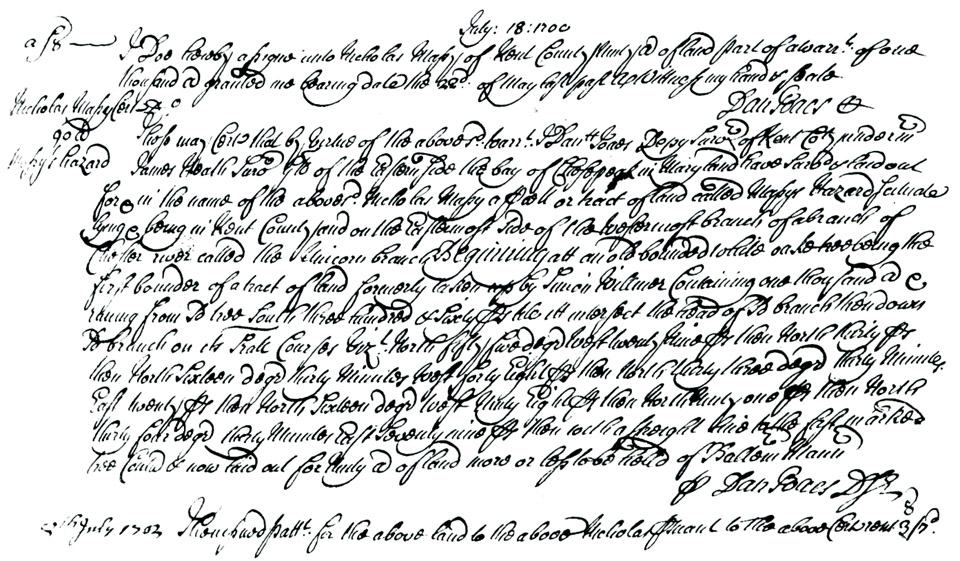 July: 18: 1700
I Doe hereby assigne unto Nicholas Massy of Kent County Ninty a of land part of a warrt. of one
thousand a granted me bearing date the 22d. of May last past as Witness my hand & seale
Dan Toaes
Nicholas Massy Cert
90 a
Massy's hazard
These may Certe that by Vertue of the aboves. warrt. I Danll Toaes Depy Survr of Kent Coty under
James Heath Survr of the Eastern side the bay of Chesepeak in Maryland have Survey'd laid out
for & in the name of the aboves. Nicholas Massy a Parcel or tract of land called Massys Hazard Scituate
lying & being in Kent County and on the Eastermost side of the westermost branch of a branch of
Chester river called the Unicorn branch Beginning att an old bounded white oake tree being the
first bounder of a tract of land formerly taken up by Simon Wilmer Containing one thousand a &
runing from sd tree South three hundred & Sixty ps till itt intersect the head of sd branch then down
sd branch on its Courses vizt. North fifty five degs West twenty Nine ps then North thirty ps
then North Sixteen degs thirty Minutes West forty Eight ps then North thirty three degs thirty Minutes
East twenty ps then North Sixteen degs west Eight ps then North one ps then North
thirty four degs thirty Minutes East Seventy nine ps then with a streight line to the first marked
tree Containing & now laid out for Ninty a of land more or less to be held of Mann
p Dan Toaes D Sr
July 1702 pattt. for the above land to the above Nicholas to the above Cert rent 3